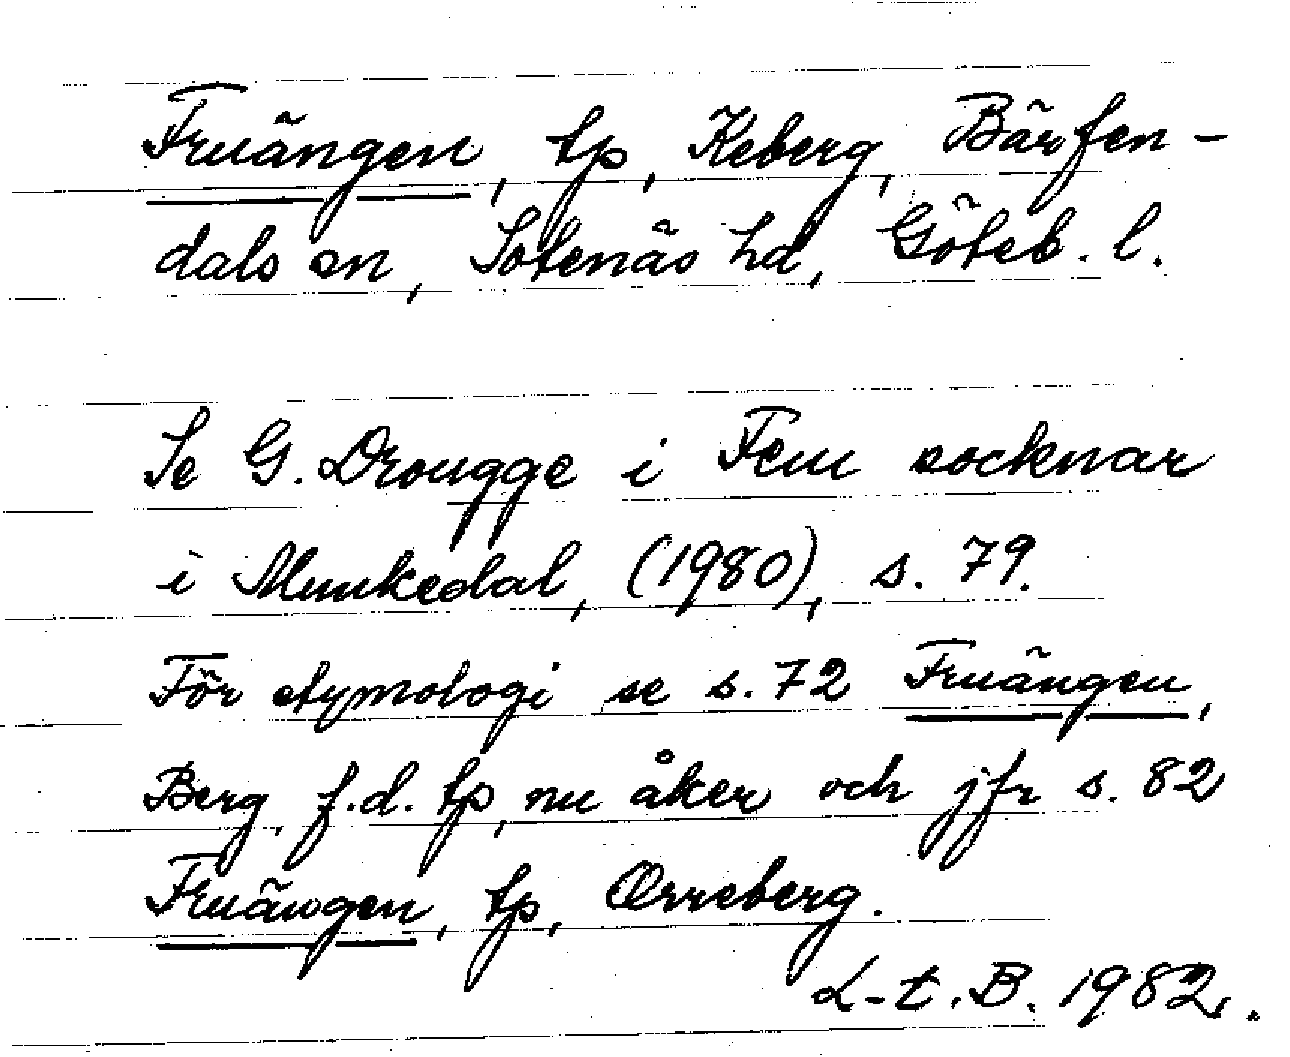 Fruängen, tp, Keberg, Bärfen-
dals sn, Sotenäs hd, Göteb. l.
Se G. Drougge i Fem socknar
i Munkedal, (1980), s. 79.
För etymologi se s. 72 Fruängen,
Berg, f.d. tp, nu åker och jfr s. 82
Fruängen, tp, Orreberg.
L-t. B. 1982.